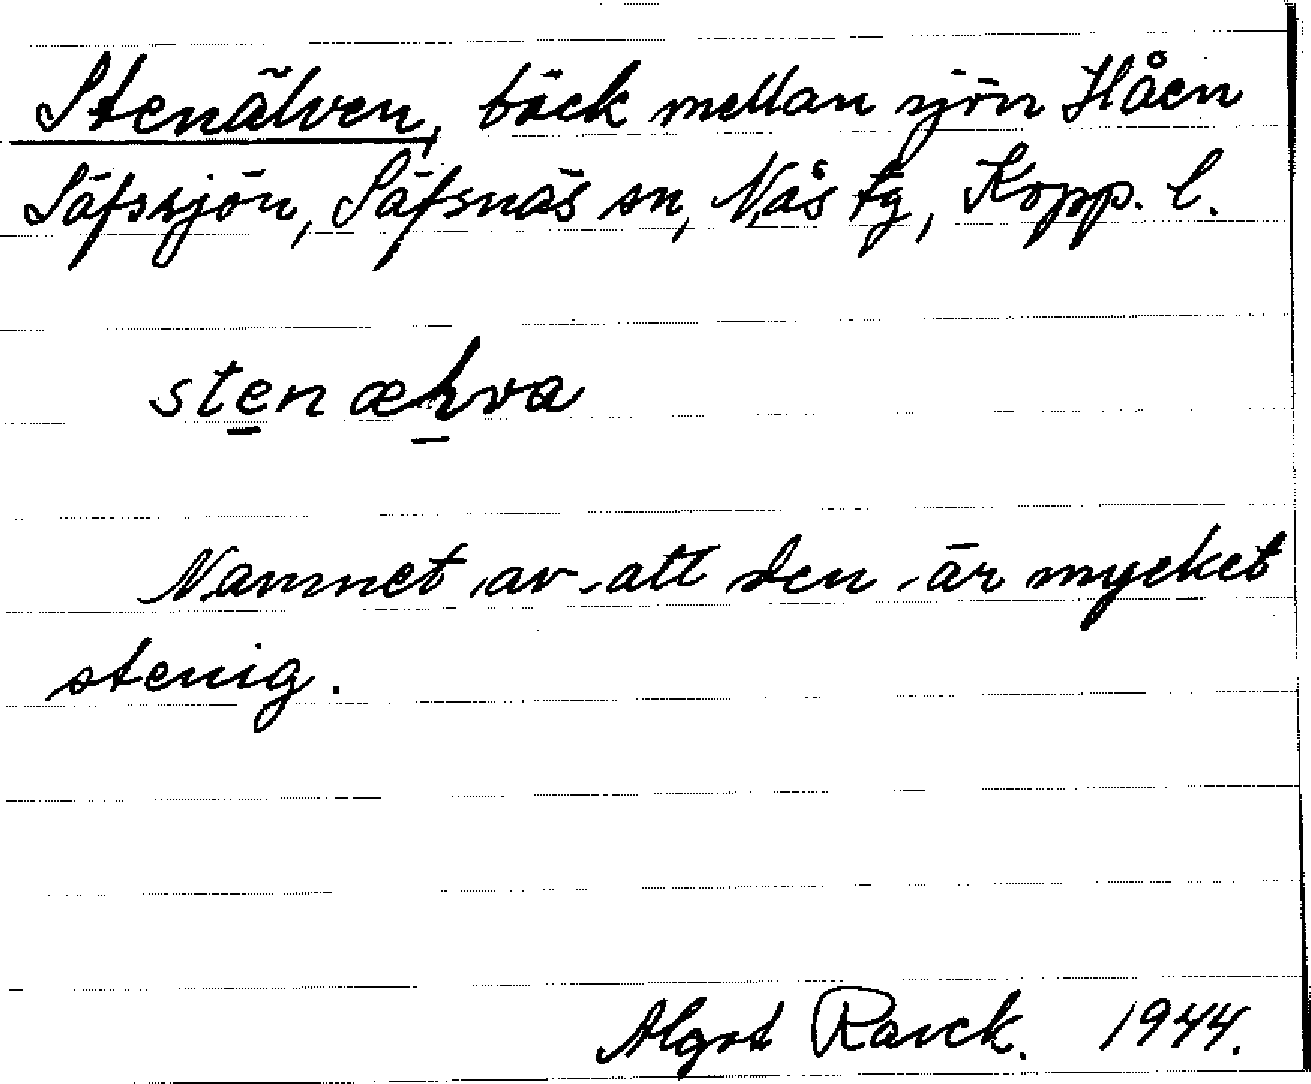 Stenälven, bäck mellan sjön Håen
Säfssjön, Säfsnäs sn, Nås tg, Kopp. l.
stenælva
Namnet av att den är mycket
stenig.
Algot Rarck. 1944.